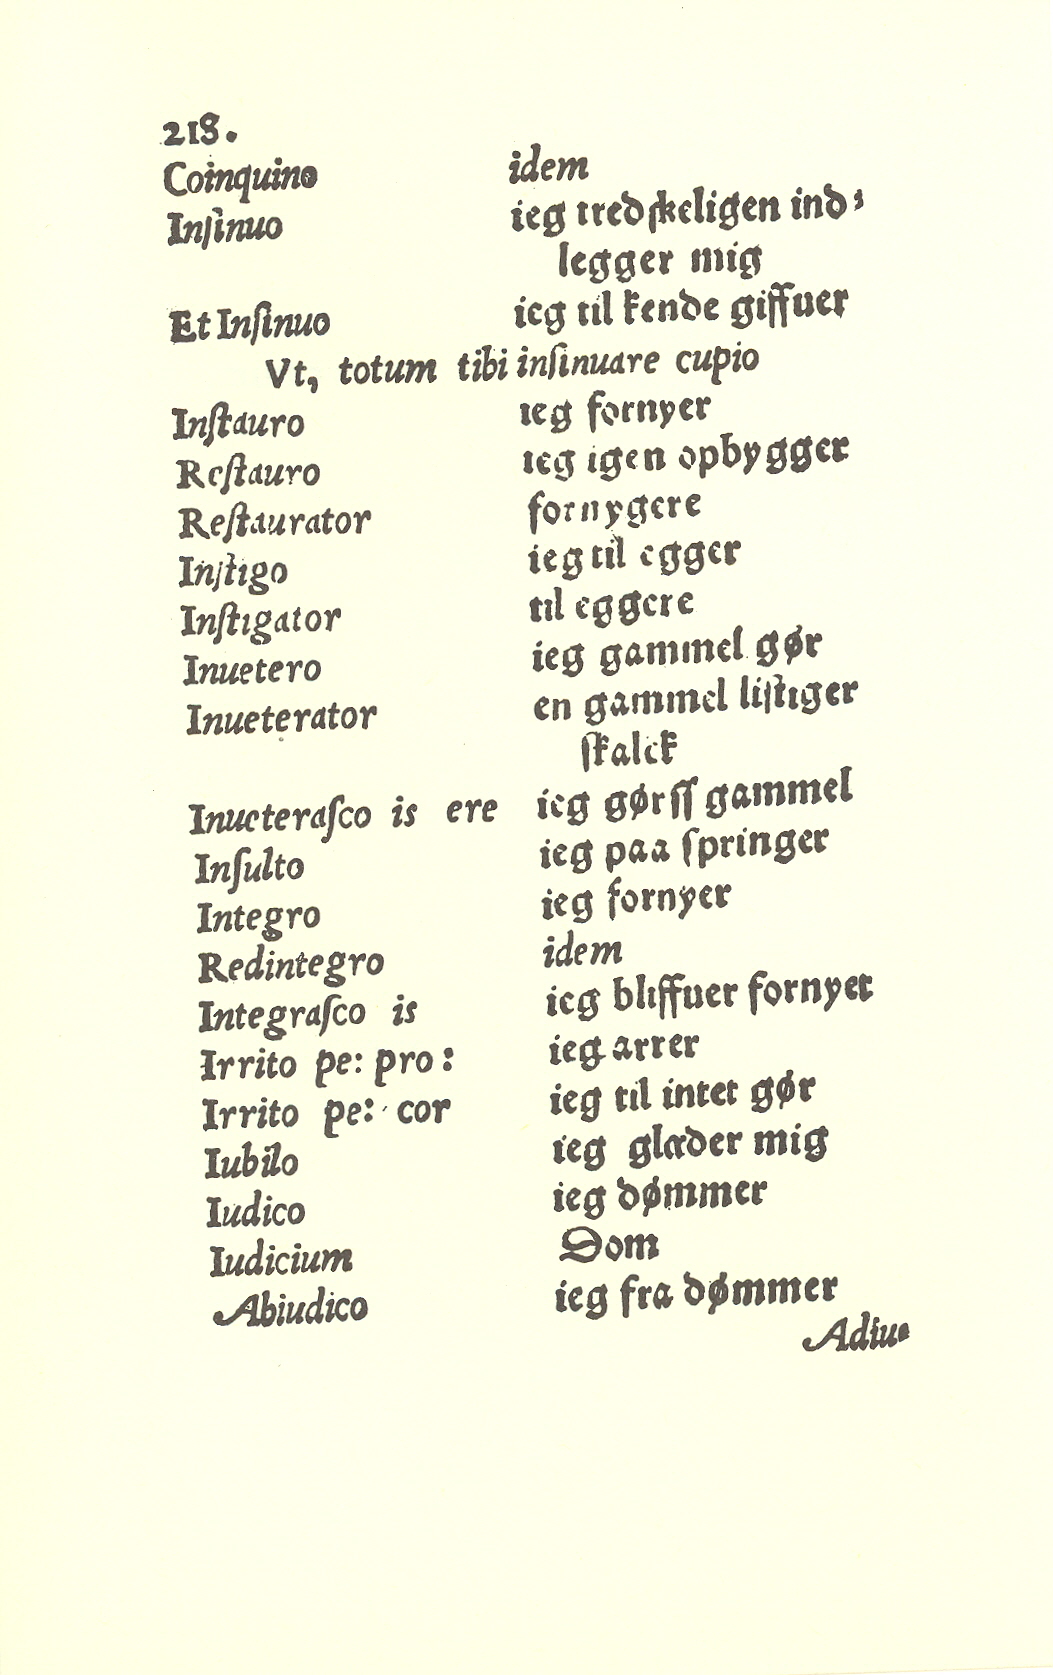 218.
Coinquino idem
Inſinuo ieg tredſkeligen ind⸗
legger mig
Et Inſinuo ieg til kende giffuer
Vt, totum tibi inſinuare cupio
Inſtauro ieg fornyer
Reſtauro ieg igen opbygger
Reſtaurator fornygere
Inſtigo ieg til egger
Inſtigator til eggere
Inuetero ieg gammel gør
Inueterator en gammel liſtiger
ſkalck
Inueteraſco is ere ieg gørſſ gammel
Inſulto ieg paa ſpringer
Integro ieg fornyer
Redintegro idem
Integraſco is ieg bliffuer fornyet
Irrito pe: pro: ieg arrer
Irrito pe: cor ieg til intet gør
Iubilo ieg glæder mig
Iudico ieg dømmer
Iudicium Dom
Abiudico ieg fra dømmer
Adiu⸗